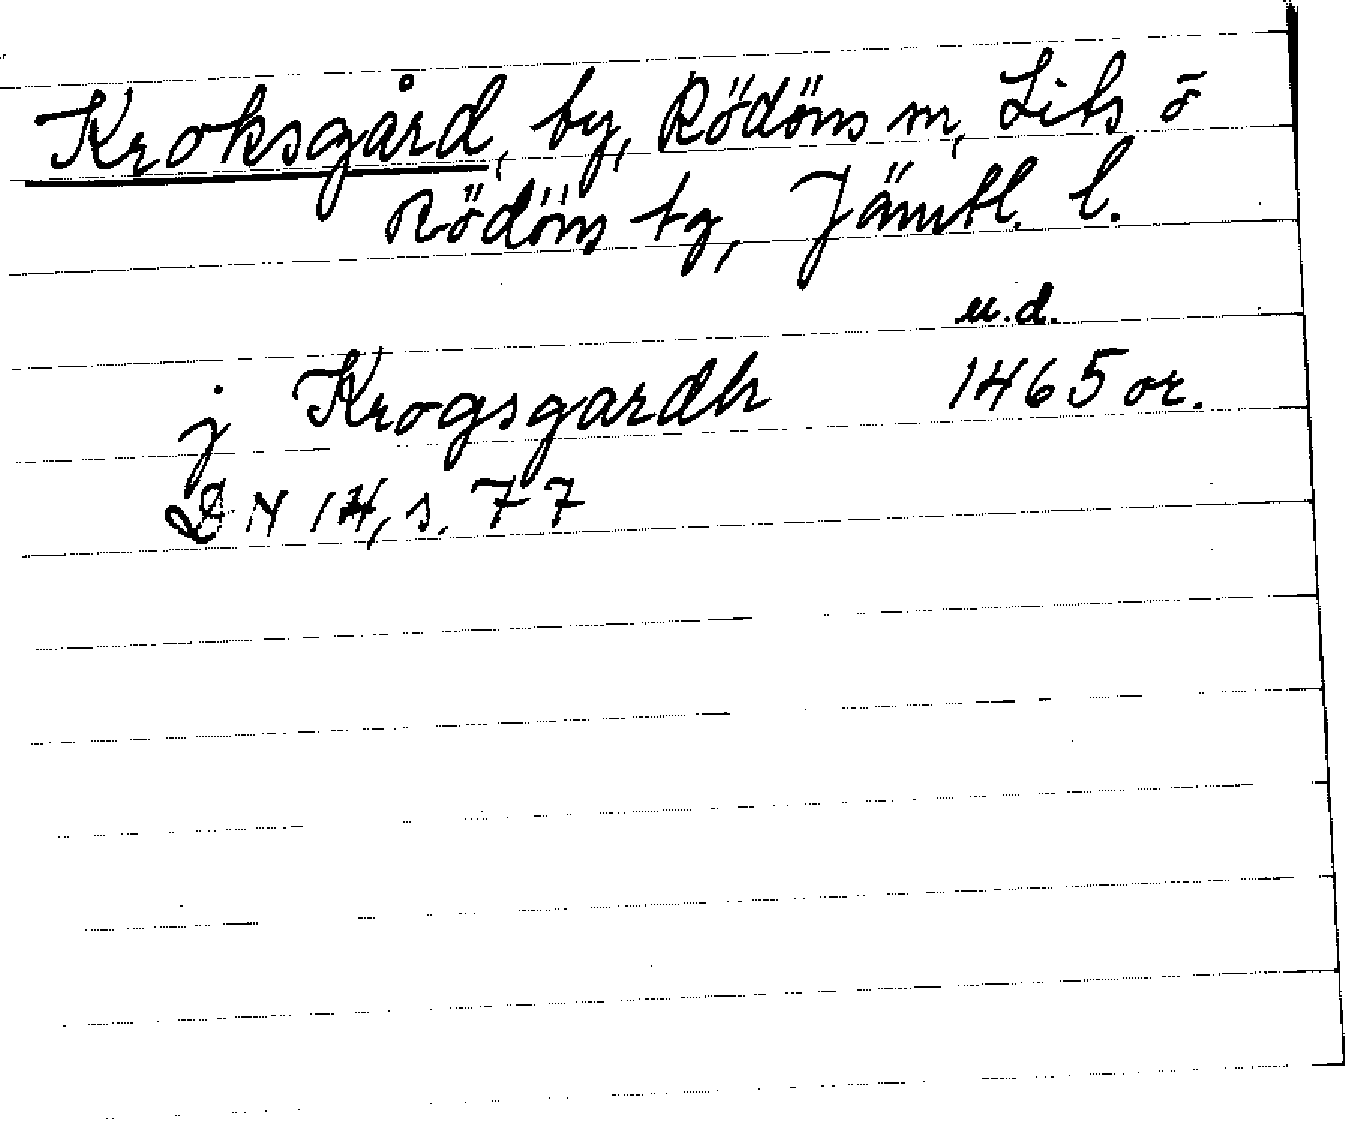 Kroksgård, by, Rödöns sn, Lits o
Rödöns tg, Jämtl. l.
u.d.
j Krogsgardh 1465 or.
DN 14, s. 77